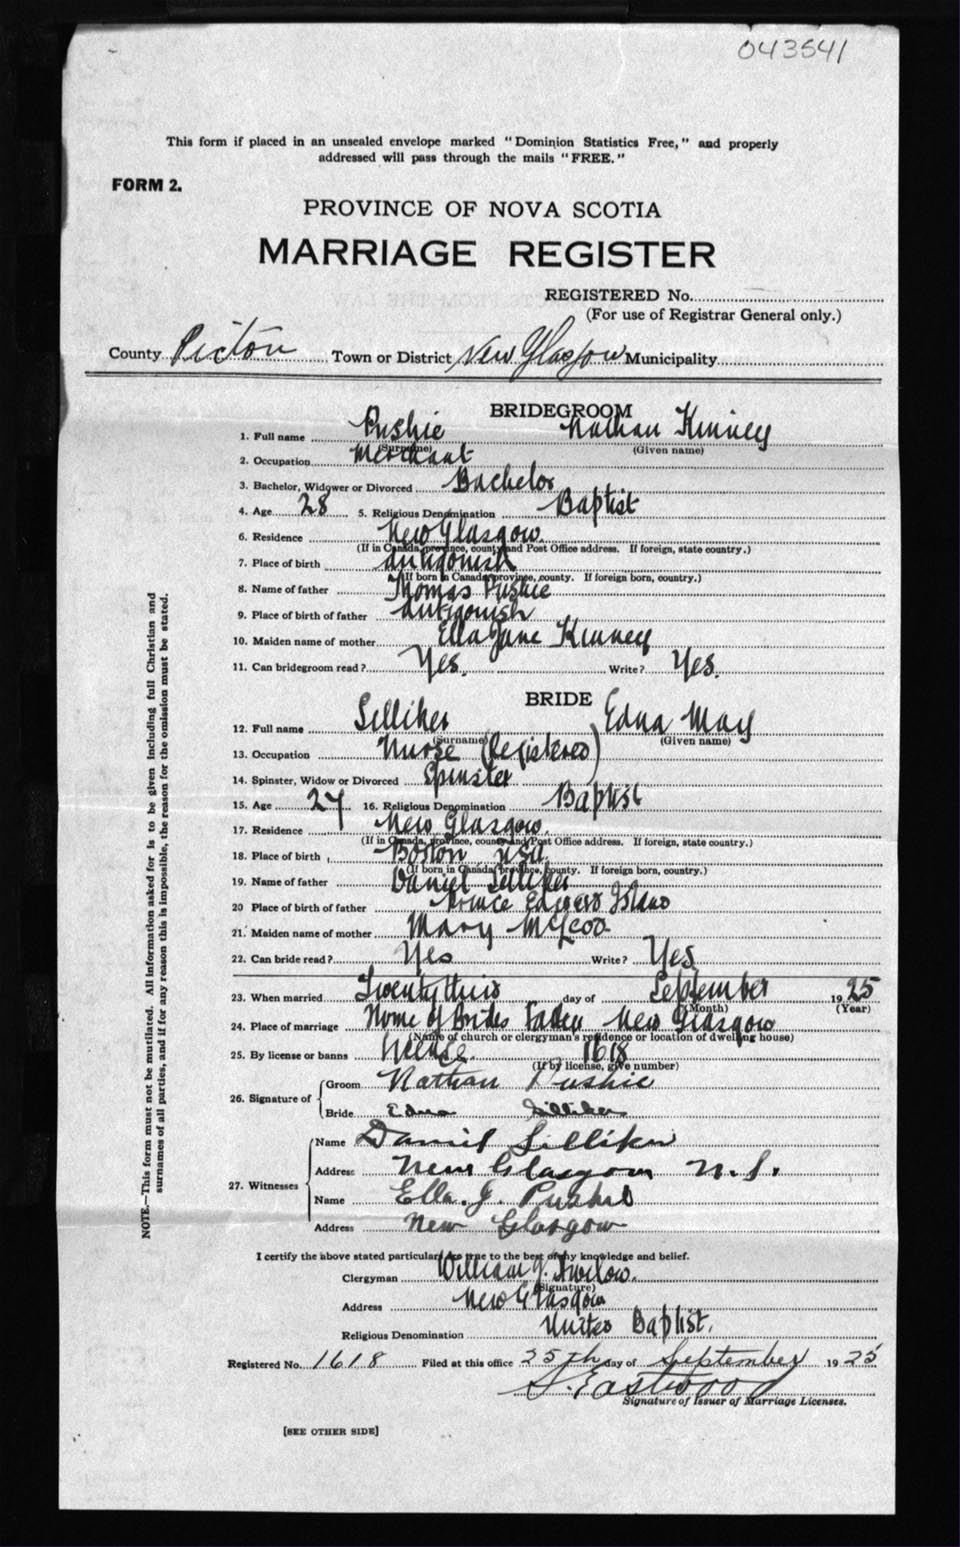 043541
This form if placed in an unsealed envelope marked "Dominion Statistics Free," and properly
addressed will pass through the mails "FREE."
FORM 2.
PROVINCE OF NOVA SCOTIA
MARRIAGE REGISTER
REGISTERED No.
(For use of Registrar General only.)
County Pictou Town or District New Glasgow Municipality
BRIDEGROOM
1. Full name Pushie Nathan Kinney
(Surname) (Given name)
2. Occupation Merchant
3. Bachelor, Widower or Divorced Bachelor
4. Age 28 5. Religious Denomination Baptist
6. Residence New Glasgow.
(If in Canada, province, county and Post Office address. If foreign, state country.)
7. Place of birth Antigonish
(If born in Canada, province, county. If foreign born, country.)
8. Name of father Thomas Pushie
9. Place of birth of father Antigonish
10. Maiden name of mother Ella Jane Kinney
11. Can bridegroom read? Yes. Write? Yes.
BRIDE
12. Full name Silliker Edna May
(Surname) (Given name)
13. Occupation Nurse (Registered)
14. Spinster, Widow or Divorced Spinster
15. Age 27 16. Religious Denomination Baptist
17. Residence New Glasgow.
(If in Canada, province, county and Post Office address. If foreign, state country.)
18. Place of birth Boston USA
(If born in Canada, province, county. If foreign born, country.)
19. Name of father Daniel Silliker
20 Place of birth of father Prince Edward Island
21. Maiden name of mother Mary McLeod
22. Can bride read? Yes Write? Yes
23. When married Twenty third day of September 1925
(Month) (Year)
24. Place of marriage Home of Brides Father New Glasgow
(Name of church or clergyman's residence or location of dwelling house)
25. By license or banns License. 1618
(If by license, give number)
26. Signature of Groom Nathan Pushie
Bride Edna Silliker
27. Witnesses Name Daniel Silliker
Address New Glasgow N.S.
Name Ella. J. Pushie
Address New Glasgow
I certify the above stated particulars are true to the best of my knowledge and belief.
Clergyman William J.
(Signature)
Address New Glasgow
Religious Denomination United Baptist.
Registered No. 1618 Filed at this office 25th day of September 1925
S. Eastwood
Signature of Issuer of Marriage Licenses.
[SEE OTHER SIDE]
NOTE.—This form must not be mutilated. All information asked for is to be given including full Christian and
surnames of all parties, and if for any reason this is impossible, the reason for the omission must be stated.